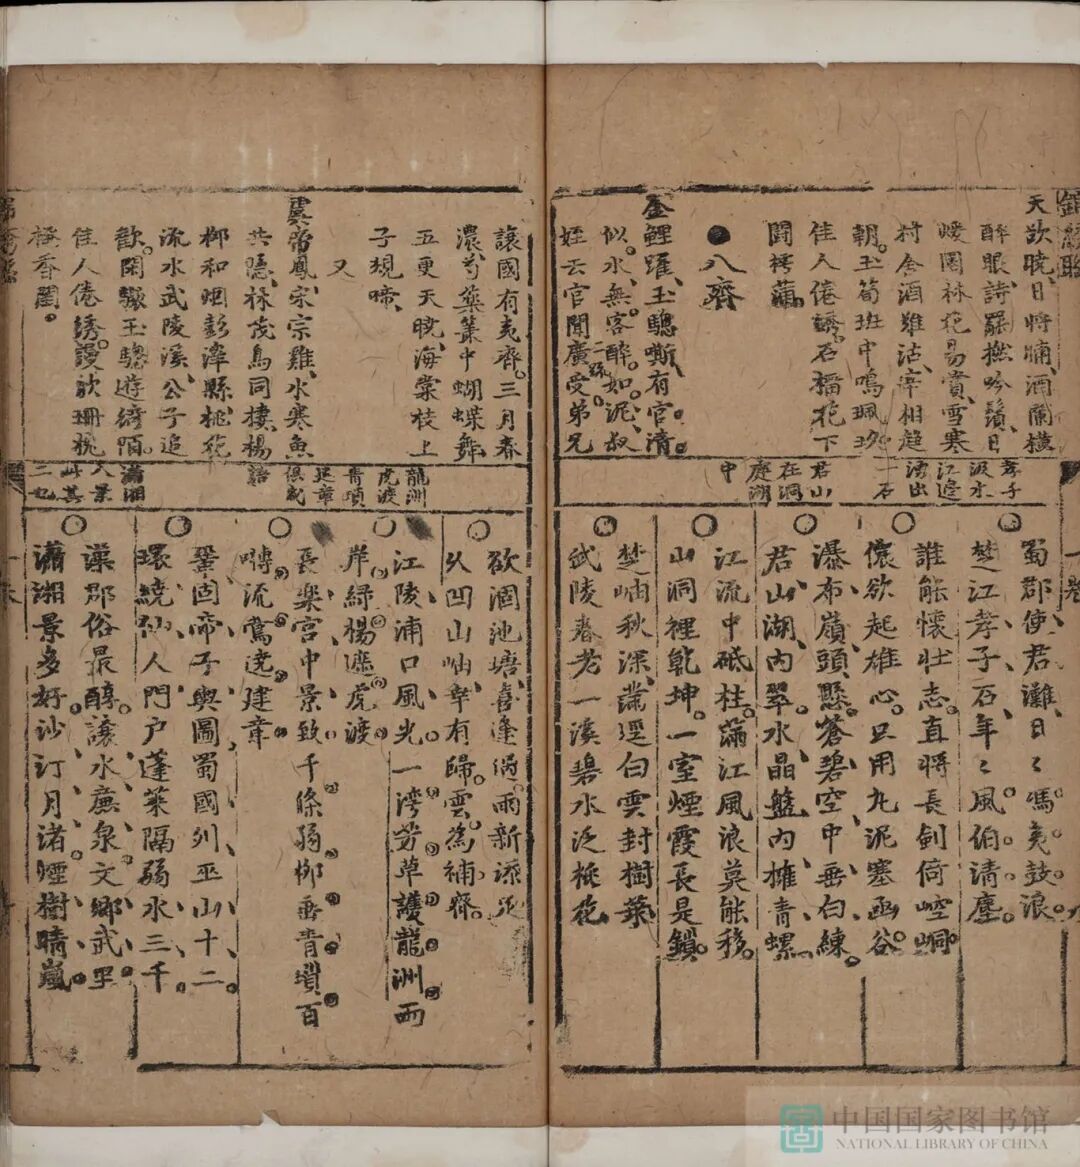 天欲曉日將晡酒闌橫
醉眼詩羅撚吟鬚日
暖園林花易賞雪寒
村舍酒難沽宰相趨
朝玉筍班中鳴珮玖
佳人倦綉石榴花下
鬪樗蒲
八齊
金鯉躍玉驄嘶有官清
似水無客醉如泥叔
姪云官聞廣受弟兄
孝子
汲水
江邉
湧出
一石
君山
在洞
庭湖
中
蜀郡使君灘日〻馮夷鼓浪
楚江孝子石年〻風伯清塵
誰能懷壯志直將長劍倚崆峒
儻欲起雄心只用丸泥塞函谷
瀑布嶺頭懸蒼碧空中垂白練
君山湖内翠水晶盤内擁青螺
江流中砥柱滿江風浪莫能移
山洞裡乾坤一室煙霞長是鎖
楚岫秋深滿逕白雲封樹葉
武陵春老一溪碧水泛桃花
讓國有夷齊三月春
濃芍藥叢中蝴蝶舞
五更天曉海棠枝上
子規啼
又
虞帝鳳宋宗雞水寒魚
共隱林茂鳥同棲楊
柳和烟彭澤縣桃花
流水武陵溪公子追
歡閑驟玉驄遊綺陌
佳人倦綉謾欹珊枕
掩香閨
龍洲
虎渡
青瑣
建章
俱武
語
瀟湘
八景
此其
二也
欲涸池塘喜逢過雨新添足
久凹山岫幸有歸雲為補齊
江陵浦口風光一灣芳草護龍洲兩
岸綠楊遮虎渡
長樂宮中景致千條弱柳垂青瑣百
囀流鶯遶建章
鞏固帝子輿圖蜀國列巫山十二
環繞仙人門户蓬萊隔弱水三千
漢郡俗最醇讓水廉泉文鄉武里
瀟湘景多好沙汀月渚煙樹晴嵐
中国国家图书馆
NATIONAL LIBRARY OF CHINA